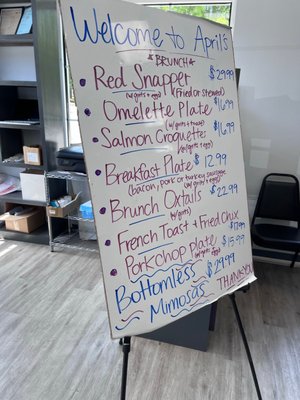 Welcome to April's
*BRUNCH*
Red Snapper $29.99
(w/grits + eggs) (Fried or Stewed)
Omelette Plate $16.99
(w/grits + toast)
Salmon Croquettes $16.99
(w/grits + eggs)
Breakfast Plate $12.99
(bacon, pork or turkey sausage
w/ grits + eggs)
Brunch Oxtails $22.99
(w/grits)
French Toast + Fried Chix $17.99
Porkchop Plate $15.99
(w/grits + eggs)
Bottomless $29.99
Mimosas THANK YOU